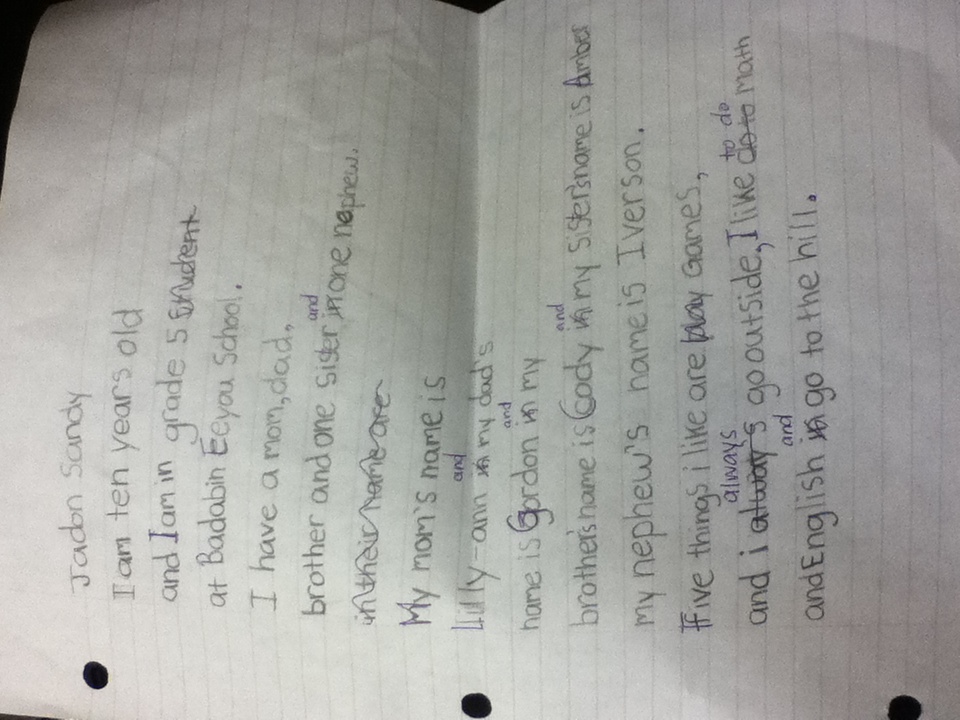 Jadon Sandy
I am ten years old
and I am in grade 5 student
at Badabin Eeyou School.
I have a mom, dad,
brother and one sister in and one nephew.
in their name are
My mom's name is
Lilly-ann in and my dad's
name is Gordon in and my
brother's name is Cody in and my sister's name is Amber
my nephew's name is Iverson.
Five things i like are play Games,
and i alway's always go outside, I like do to to do math
and English in and go to the hill.